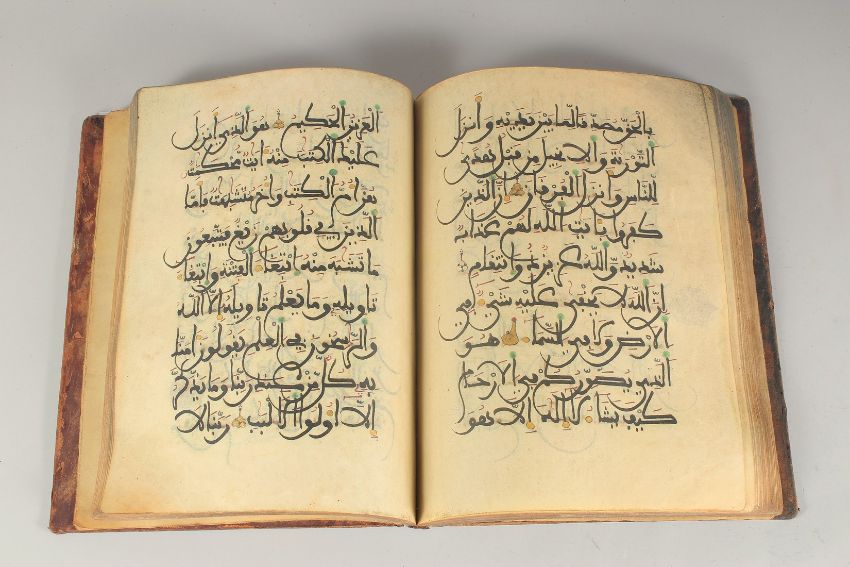 بالحق مصدقا لما بين يديه وأنزل
التورية والانجيل من قبل هدى
للناس وأنزل الفرقان إن الذين
كفروا بأيت الله لهم عذاب
شديد والله عزيز ذو انتقام
إن الله لا يخفى عليه شيء في
الارض ولا في السماء هو
الذي يصوركم في الارحام
كيف يشاء لا إله إلا هو
العزيز الحكيم هو الذي أنزل
عليك الكتب منه ايت محكمت
هن أم الكتب وأخر متشبهت فأما
الذين في قلوبهم زيغ فيتبعون
ما تشبه منه ابتغاء الفتنة وابتغاء
تاويله وما يعلم تاويله إلا الله
والرسخون في العلم يقولون امنا
به كل من عند ربنا وما يذكر
إلا أولوا الالبب ربنا لا